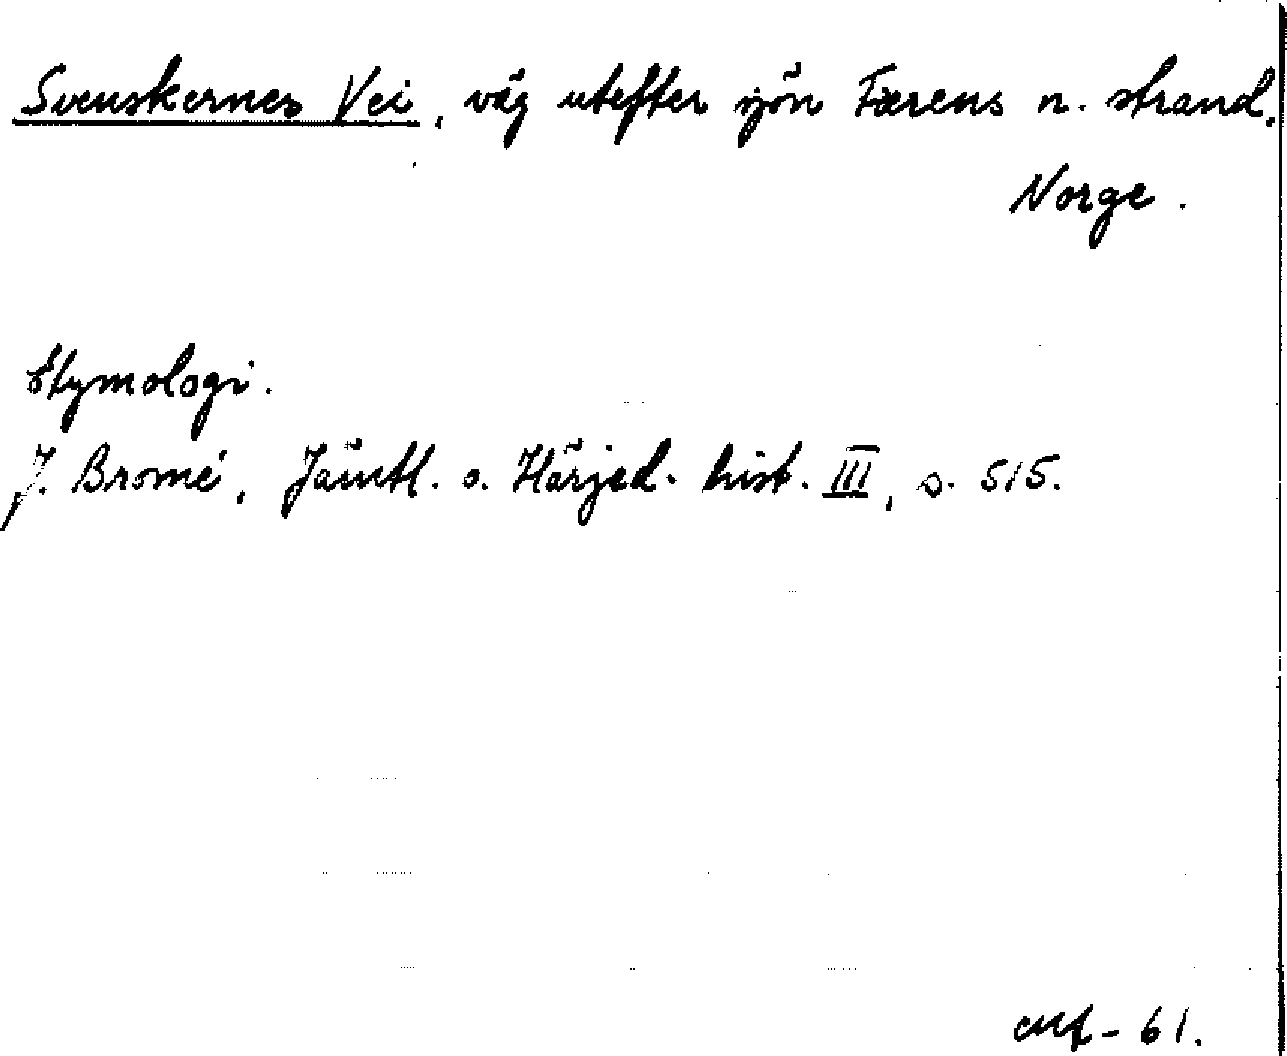 Svenskernes Vei, väg utefter sjön Færens n. strand.
Norge.
Etymologi.
J. Bromé, Jämtl. o. Härjed. hist. III, s. 515.
- 61.